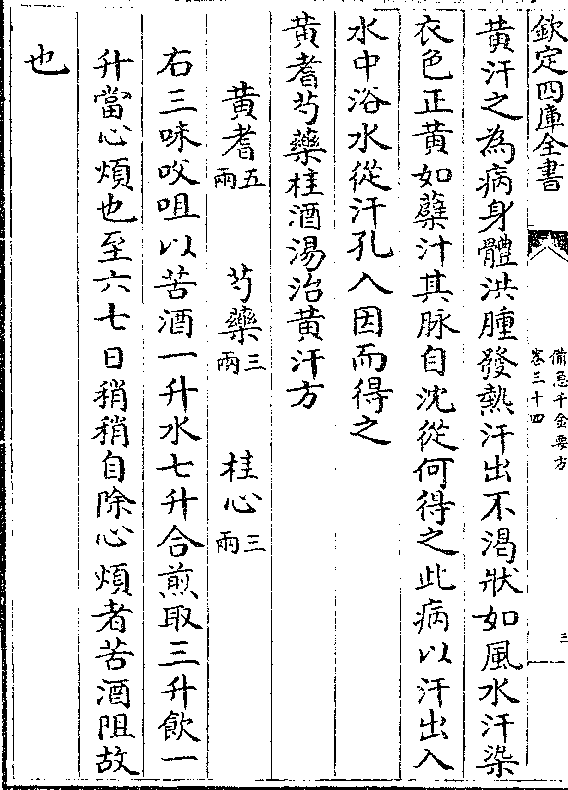 欽定四庫全書
備急千金要方
卷三十四
三
黃汗之為病身體洪腫發熱汗出不渴狀如風水汗染
衣色正黃如蘗汁其脉自沈從何得之此病以汗出入
水中浴水從汗孔入因而得之
黃耆芍藥桂酒湯治黃汗方
黃耆五兩 芍藥三兩 桂心三兩
右三味㕮咀以苦酒一升水七升合煎取三升飲一
升當心煩也至六七日稍稍自除心煩者苦酒阻故
也